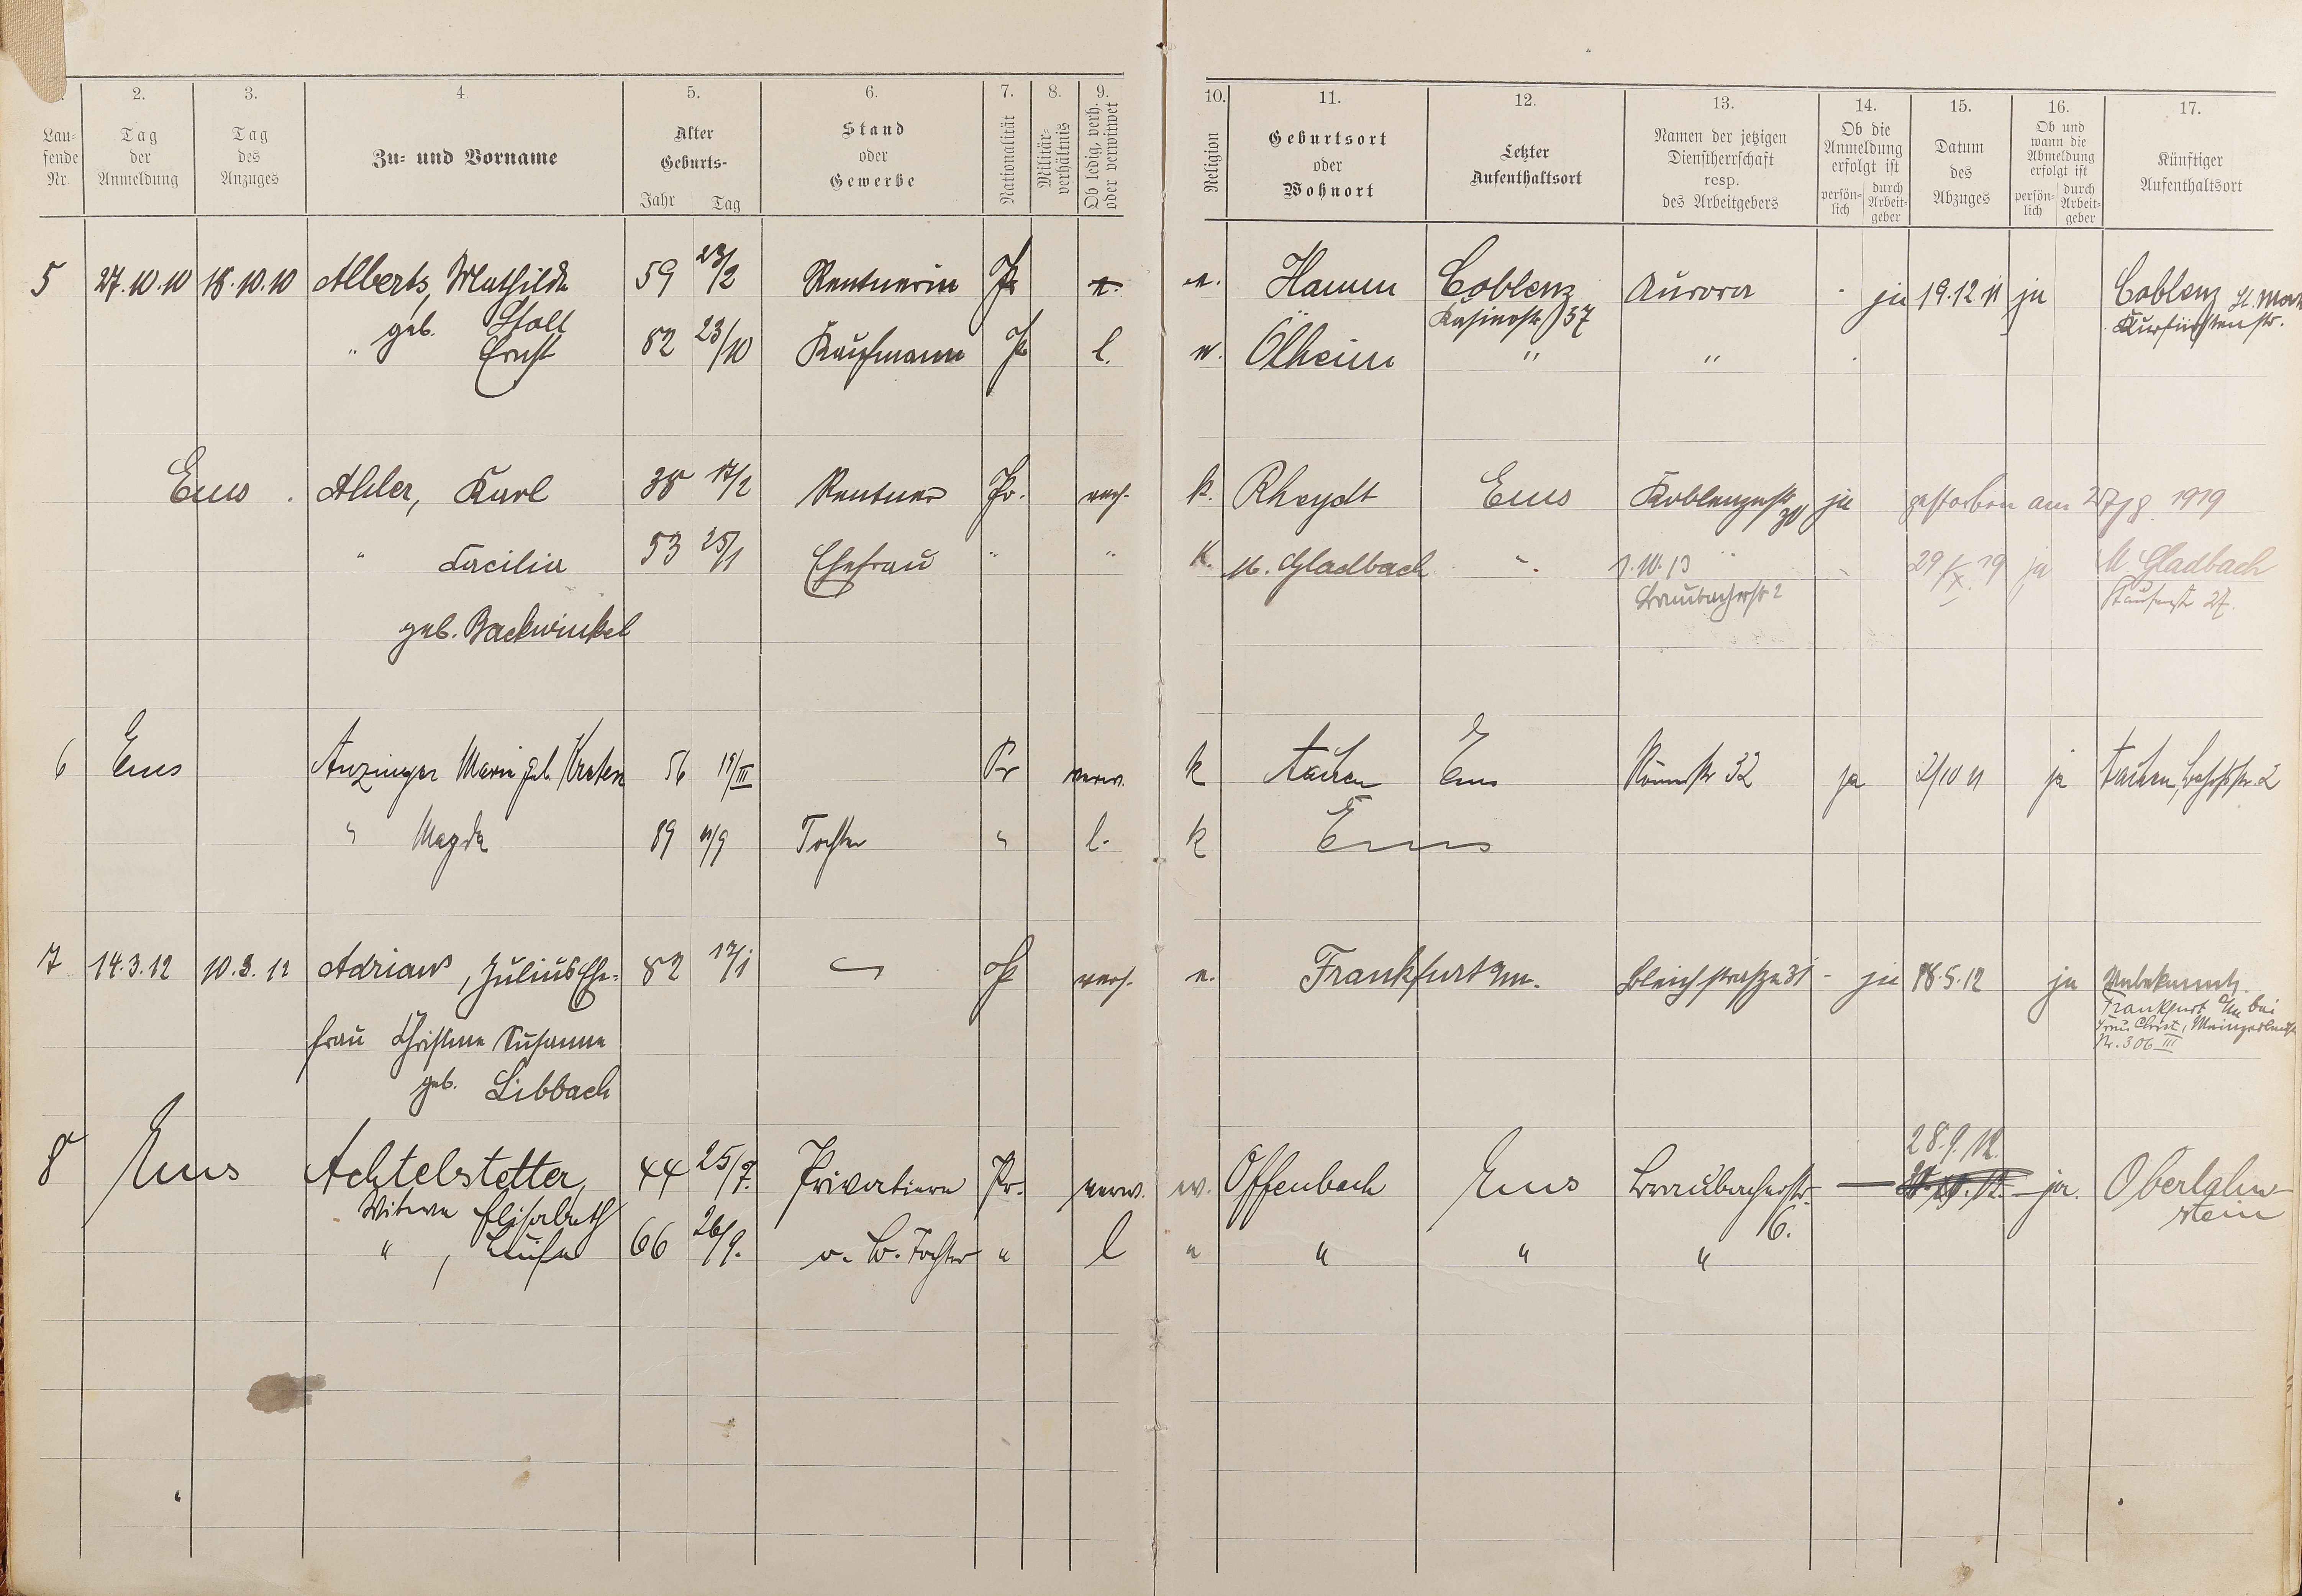 2. 3. 4. 5. 6. 7. 8. 9. 10. 11. 12. 13. 14. 15. 16. 17.
Lau-
fende
Nr.
Tag
der
Anmeldung
Tag
des
Anzuges
Zu- und Vorname
Alter
Geburts-
Jahr Tag
Stand
oder
Gewerbe
Nationalität
Militär-
verhältnis
Ob ledig, verh.
oder verwitwet
Religion
Geburtsort
oder
Wohnort
Letzter
Aufenthaltsort
Namen der jetzigen
Dienstherrschaft
resp.
des Arbeitgebers
Ob die
Anmeldung
erfolgt ist
persön-
lich
durch
Arbeit-
geber
Datum
des
Abzuges
Ob und
wann die
Abmeldung
erfolgt ist
persön-
lich
durch
Arbeit-
geber
Künftiger
Aufenthaltsort
5 27.10.10 18.10.10 Alberts, Mathilde 59 23/2 Rentnerin Pr e. Hamm Coblenz Aurora ja 19.12.11 ja Coblenz
geb. Stoll Kasinostr 57 Kurfürstenstr.
" Ernst 82 23/10 Kaufmann Pr l. Ölheim " "
Ems. Ahler, Karl 38 17/2 Rentner Pr. verh. k. Rheydt Ems Koblenzerstr ja gestorben am 1919
" Cäcilia 53 25/1 Ehefrau " " K. M. Gladbach " 1.10.13 " 29/IX.19 ja M. Gladbach
Braubacherstr 2 27.
geb. Backwinkel
6 Ems Anzinger Marie geb. 56 19/III Pr verw. k Aachen Ems Römerstr 32 ja 2/10 11 ja Aachen, 2
" Magda 89 11/9 Tochter " l. k Ems
7 14.3.12 10.3.12 Adrians, Julius Ehe- 82 17/1 Pr verh. e. Frankfurt a/m. Bleichstrasze 31 - ja 18.5.12 ja Unbekannt.
Frankfurt a/m bei
Frau Christ, Mainzerlandstr
Nr. 306 III
frau Christine Susanna
geb. Libbach
28.9.12.
8 Ems Achtelstetter, 44 25/7. Privatiere Pr. verw. ev. Offenbach Ems Braubacherstr. — ja. Oberlahn-
stein
Witwe Elisabeth 6.
" , Luise 66 26/9. o. B. Tochter " l " " " "